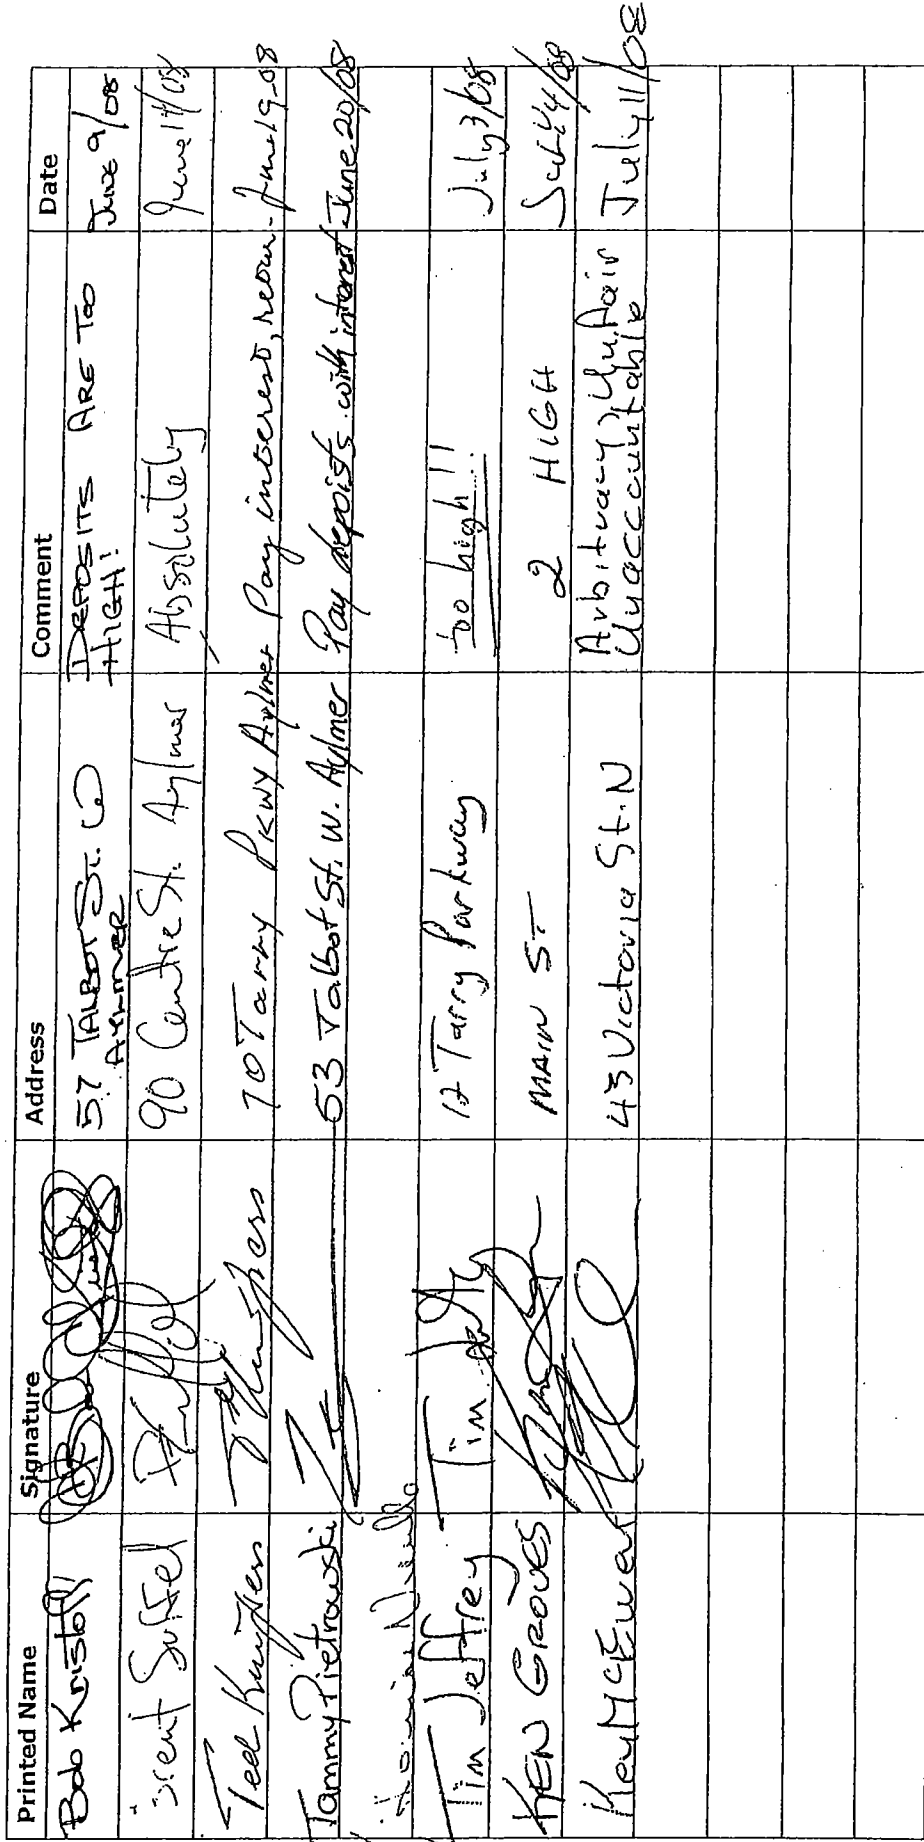 Printed Name Signature Address Comment Date
Bob Kristoff 57 TALBOT ST. W DEPOSITS ARE TOO June 9/08
AYLMER HIGH!
Brent Suffel 90 Centre St. Aylmer Absolutely June 14/08
Ted 70 Tarry Pkwy Aylmer Pay interest, June 19-08
Tammy Pietrowski 53 Talbot St. W. Aylmer Pay deposits with interest June 20/08
Tim Jeffrey Tim 12 Tarry Parkway too high!! July 3/08
KEN GROVES MAIN ST 2 HIGH
Kay McEwan Arbitrary, Unfair
43 Victoria St. N Unaccountable July 11/08